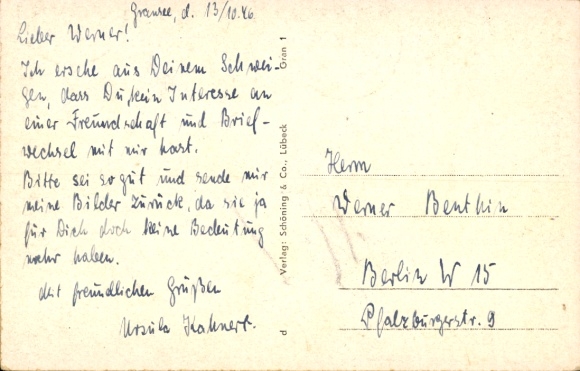 Gransee, d. 13/10.46
Lieber Werner!
Ich ersehe aus Deinem Schwei-
gen, dass Du kein Interesse an
einer Freundschaft und Brief-
wechsel mit mir hast.
Bitte sei so gut und sende mir
meine Bilder zurück, da sie ja
für Dich doch keine Bedeutung
mehr haben.
Mit freundlichen Grüßen
Ursula Kahnert.
Gran 1
Verlag: Schöning & Co., Lübeck
d
Herrn
Werner Benthin
Berlin W 15
Pfalzburgerstr. 9